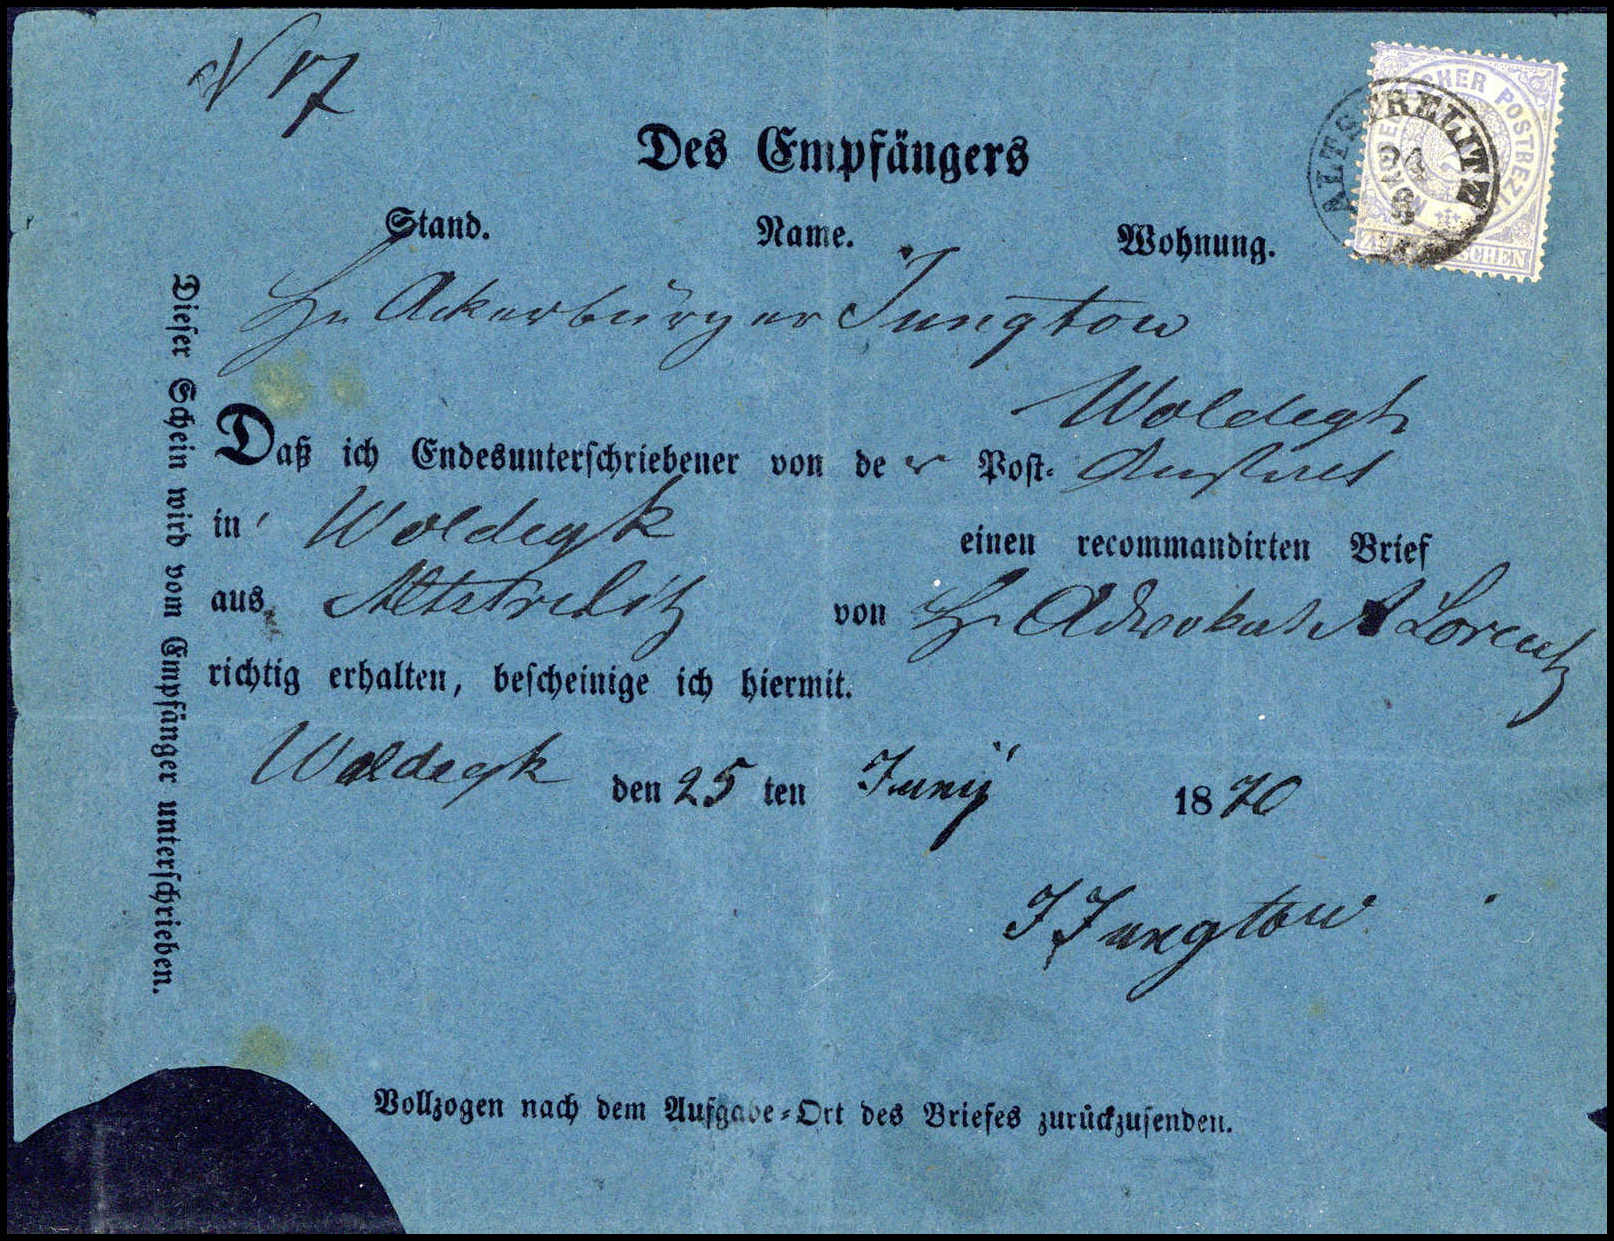 N 17
Des Empfängers
Stand. Name. Wohnung.
Hr Ackerbürger Jungtow
Woldegk
Daß ich Endesunterschriebener von de r Post-
in Woldegk einen recommandirten Brief
aus Altstrelitz von Hr Advokat A Lorentz
richtig erhalten, bescheinige ich hiermit.
Woldegk den 25 ten Juny 1870
J Jungtow
Vollzogen nach dem Aufgabe-Ort des Briefes zurückzusenden.
Dieser Schein wird vom Empfänger unterschrieben.
ALTSTRELITZ
24
6